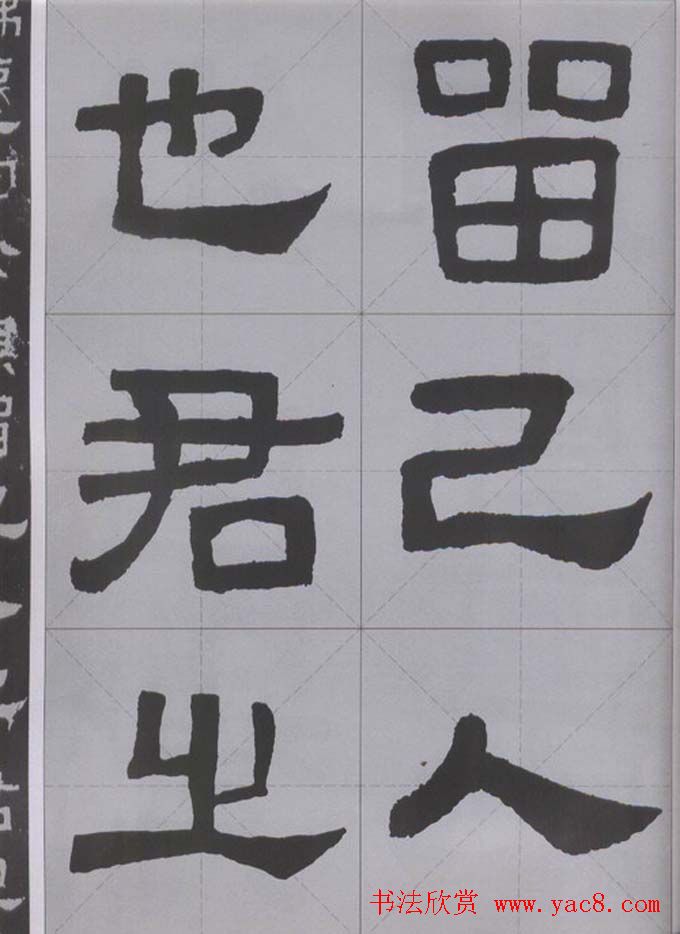 留己人
也君之
书法欣赏 www.yac8.com